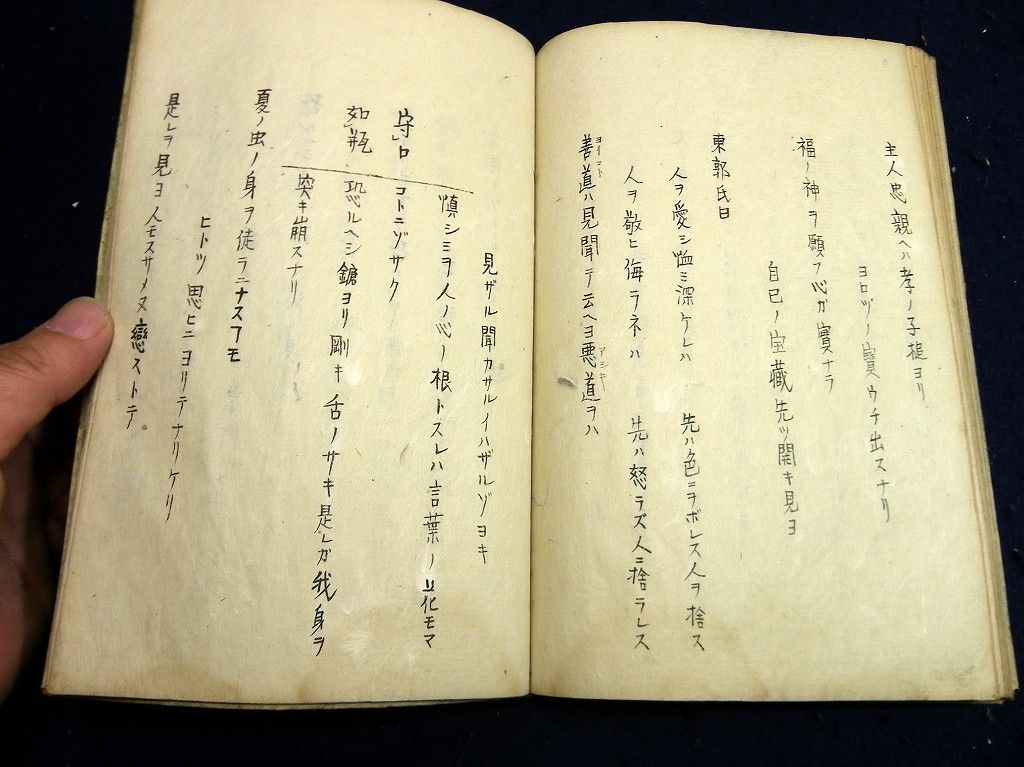 主人忠親ヘハ孝ノ子槌ヨリ
ヨロヅノ寶ウチ出スナリ
福ノ神ヲ願フ心ガ實ナラ
自己ノ宝藏先ツ開キ見ヨ
東郭氏曰
人ヲ愛シ恤ミ深ケレハ 先ハ色ニヲボレス人ヲ捨ス
人ヲ敬ヒ侮ラネハ 先ハ怒ラズ人ニ捨ラレス
善道ハ見聞テ云ヘヨ悪道ヲハ
ヨイコト
アシキ
見ザル聞カサルイハザルゾヨキ
慎シミヲ人ノ心ノ根トスレハ言葉ノ花モマ
コトニゾサク
守口
如瓶
恐ルヘシ鎗ヨリ剛キ舌ノサキ是レガ我身ヲ
突キ崩スナリ
夏ノ虫ノ身ヲ徒ラニナスフモ
ヒトツ思ヒニヨリテナリケリ
是レヲ見ヨ人モスサメヌ戀ストテ